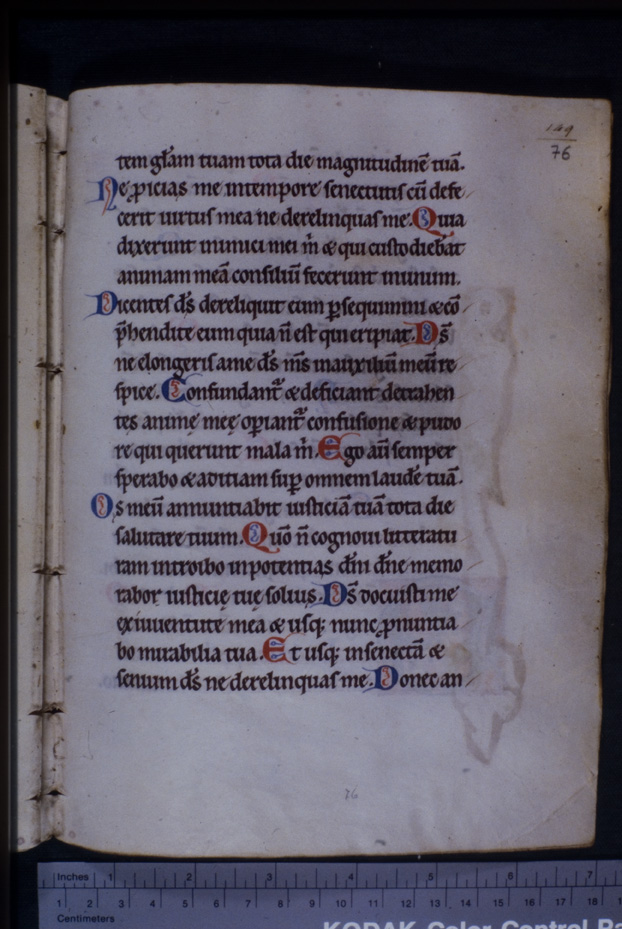 149
76
tem gl̄am tuam tota die magnitudinē tuā.
Ne ꝓicias me intempore senectutis cū defe
cerit uirtus mea ne derelinquas me. Quia
dixerunt inimici mei m̄ & qui custodiebāt
animam meā consiliū fecerunt inunum.
Dicentes d̄s dereliquit eum ꝑsequimini & cō
p̄hendite eum quia n̄ est qui eripiat. D̄s
ne elongeris ame d̄s m̄s inauxiliū meū re
spice. Confundant᷑ & deficiant detrahen
tes animę meę oꝑiant᷑ confusione & pudo
re qui querunt mala m̄. Ego aū semper
sperabo & aditiam suꝑ omnem laudē tuā.
Os meū annuntiabit iusticiā tuā tota die
salutare tuum. Quō n̄ cognoui litteratu
ram introibo inpotentias dn̄i dn̄e memo
rabor iusticię tuę solius. D̄s docuisti me
exiuuentute mea & usqꝫ nunc ꝓnuntia
bo mirabilia tua. Et usqꝫ insenectā &
senium d̄s ne derelinquas me. Donec an
76
Inches 1 2 3 4 5 6 7
1 2 3 4 5 6 7 8 9 10 11 12 13 14 15 16 17 18
Centimeters
KODAK Color Control Pa